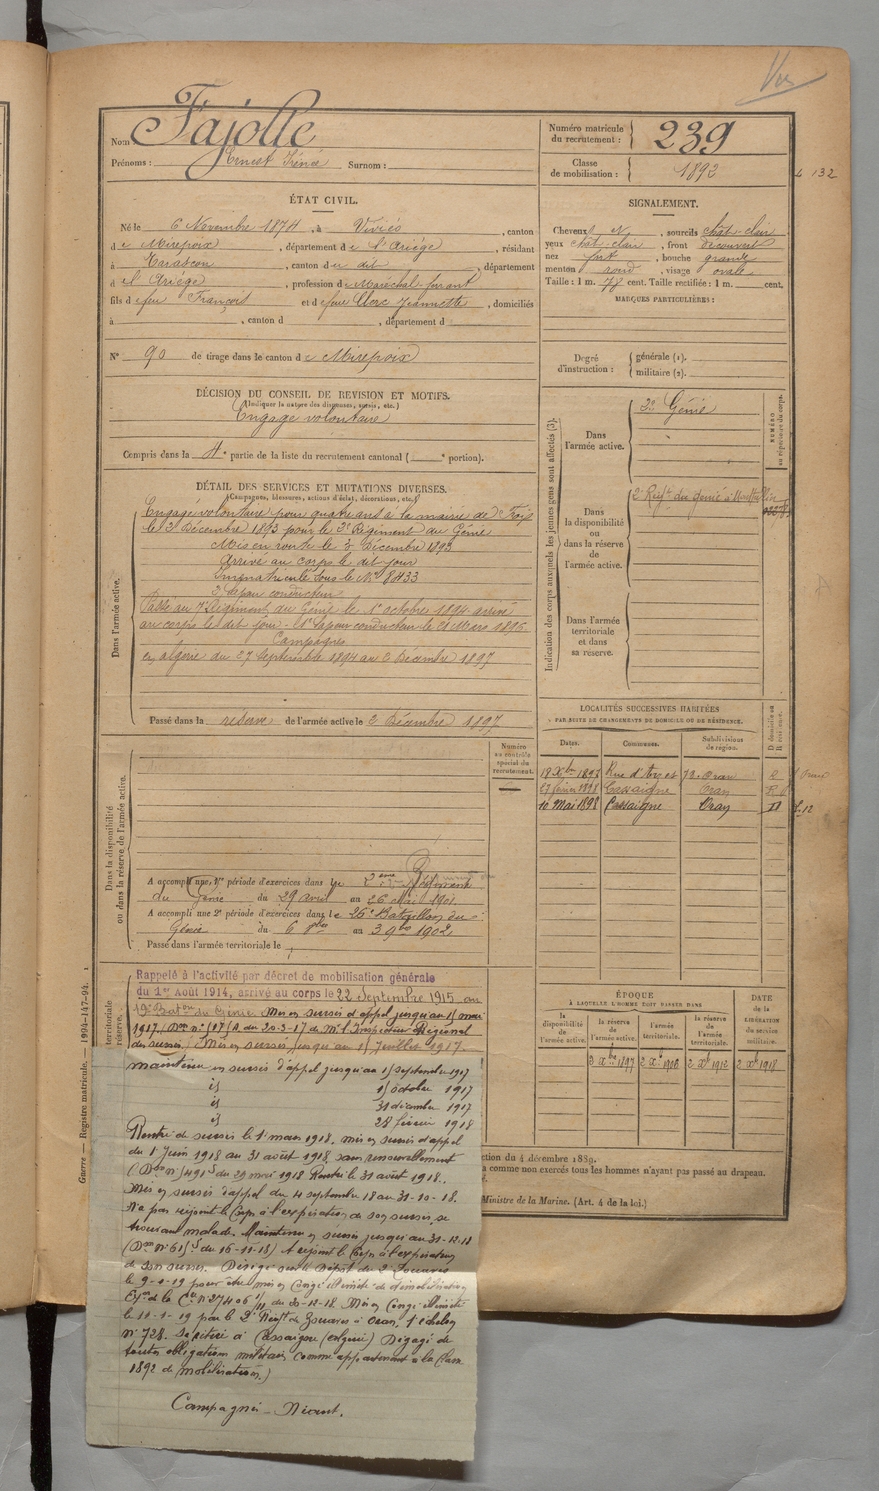 Vu
Nom Fajolle
Prénoms : Ernest Iréné Surnom :
Numéro matricule du recrutement : 239
Classe de mobilisation : 1892
132
ÉTAT CIVIL.
Né le 6 Novembre 1874, à Viviès, canton
de Mirepoix, département de l'Ariége, résidant
à Tarascon, canton du dit, département
d el Ariége, profession de Maréchal-ferrant
fils de feu François et de feue Clerc Jeannette, domiciliés
à , canton d , département d
N° 90 de tirage dans le canton de Mirepoix
SIGNALEMENT.
Cheveux , sourcils chât-clair
yeux chât-clair, front découvert
nez fort, bouche grande
menton rond, visage ovale
Taille : 1 m. 78 cent. Taille rectifiée : 1 m. cent.
MARQUES PARTICULIÈRES :
Degré d'instruction : générale (1).
militaire (2).
DÉCISION DU CONSEIL DE REVISION ET MOTIFS.
(Indiquer la nature des dispenses, sursis, etc.)
Engagé volontaire
Compris dans la 4e partie de la liste du recrutement cantonal ( e portion).
DÉTAIL DES SERVICES ET MUTATIONS DIVERSES.
(Campagnes, blessures, actions d'éclat, décorations, etc.)
Dans l'armée active.
Engagé volontaire pour quatre ans à la mairie de Foix
le 3 Décembre 1893 pour le 2e Régiment du Génie
Mis en route le 3 Décembre 1893
Arrivé au corps le dit jour
Immatriculé sous le N° 8433
2e Sapeur conducteur
Passé au 7e Régiment du Génie le 1er octobre 1894 arrivé
au corps le dit jour - 1er Sapeur conducteur le 21 Mars 1896
Campagnes
en algérie du 27 Septembre 1894 au 2 Décembre 1897
Passé dans la réserve de l'armée active le 2 Décembre 1897
Indication des corps auxquels les jeunes gens sont affectés (3).
NUMÉRO au répertoire du corps.
Dans l'armée active.
2e Génie
Dans la disponibilité ou dans la réserve de l'armée active.
2e Régt du génie à Montpellier
Dans l'armée territoriale et dans sa réserve.
LOCALITÉS SUCCESSIVES HABITÉES
PAR SUITE DE CHANGEMENTS DE DOMICILE OU DE RÉSIDENCE.
Dates. Communes. Subdivisions de région. D domicile ou R résidence.
19 Xbre 1897 Rue d'Arzet Oran R
27 février 1898 Cassaigne Oran R
10 Mai 1898 Cassaigne Oran D
Dans la disponibilité ou dans la réserve de l'armée active.
Numéro au contrôle spécial du recrutement.
A accompli une 1re période d'exercices dans le 2ème Régiment
du Génie du 29 avril au 26 Mai 1901
A accompli une 2e période d'exercices dans le 26e Bataillon du
Génie du 6 8bre au 3 9bre 1902
Passé dans l'armée territoriale le
ÉPOQUE
À LAQUELLE L'HOMME DOIT PASSER DANS
la disponibilité de l'armée active. la réserve de l'armée active. l'armée territoriale. la réserve de l'armée territoriale.
DATE de la LIBÉRATION du service militaire.
3 Xbre 1897 2 Xbre 1906 2 Xbre 1912 2 Xbre 1918
territoriale réserve.
Rappelé à l'activité par décret de mobilisation générale
du 1er Août 1914, arrivé au corps le 22 Septembre 1915 au
19e Baton du Génie. Mis en sursis d'appel jusqu'au 1er mai
1917 (Don n° 117/A du 20-3-17 de Mr l'Inspecteur Régional
des sursis) Mis en sursis jusqu'au 1er Juillet 1917.
maintenu en sursis d'appel jusqu'au 1er septembre 1917
id 1er octobre 1917
id 31 décembre 1917
id 28 février 1918
Rentré de sursis le 1er mars 1918. mis en sursis d'appel
du 1er Juin 1918 au 31 août 1918 sans renouvellement
(Don n° 491 S du 29 mai 1918 Rentré le 31 août 1918.
Mis en sursis d'appel du 4 septembre 18 au 31-10-18.
N'a pas rejoint le Corps à l'expiration de son sursis, se
trouvant malade. Maintenu en sursis jusqu'au 31-12-18
(Don n° 61 S du 16-11-18) A rejoint le Corps à l'expiration
de son sursis. Dirigé sur le Dépôt du 2e Zouaves
le 9-1-19 pour être mis en Congé illimité de démobilisation
Exon de la Cre n° 27406 du 30-12-18. Mis en Congé illimité
le 11-1-19 par le 2e Régt de Zouaves à Oran, 1er échelon
N° 728. Se retire à Cassaigne (algérie) Dégagé de
toutes obligations militaires comme appartenant à la Classe
1892 de mobilisation.)
Campagnes - Néant.
ction du 4 décembre 1889.
a comme non exercés tous les hommes n'ayant pas passé au drapeau.
Ministre de la Marine. (Art. 4 de la loi.)
Guerre — Registre matricule. — 1994-147-94.